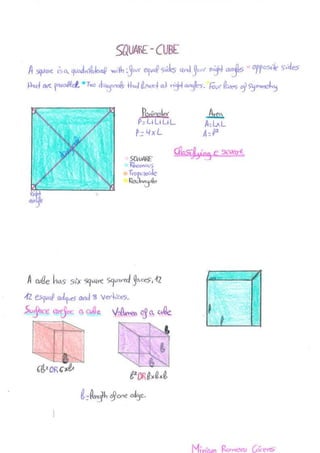 SQUARE - CUBE
A square is a quadrilateral with: four equal sides and four right angles - opposite sides
that are parallel. Two diagonals that bisect at right angles. Four lines of symmetry
Perimeter
P=L+L+L+L
P=4xL
Area
A=LxL
A=l²
Classifying a square
- SQUARE
- Rhombus
- Trapezoide
- Rectangle
right
angle
A cube has six square squared faces, 12
12 equal edges and 8 vertices.
Surface
a cube
Volumen of a cube
b
b
b
b
6b² OR 6xb²
b³ OR bxbxb
b=length of one edge.
Miriam Romero